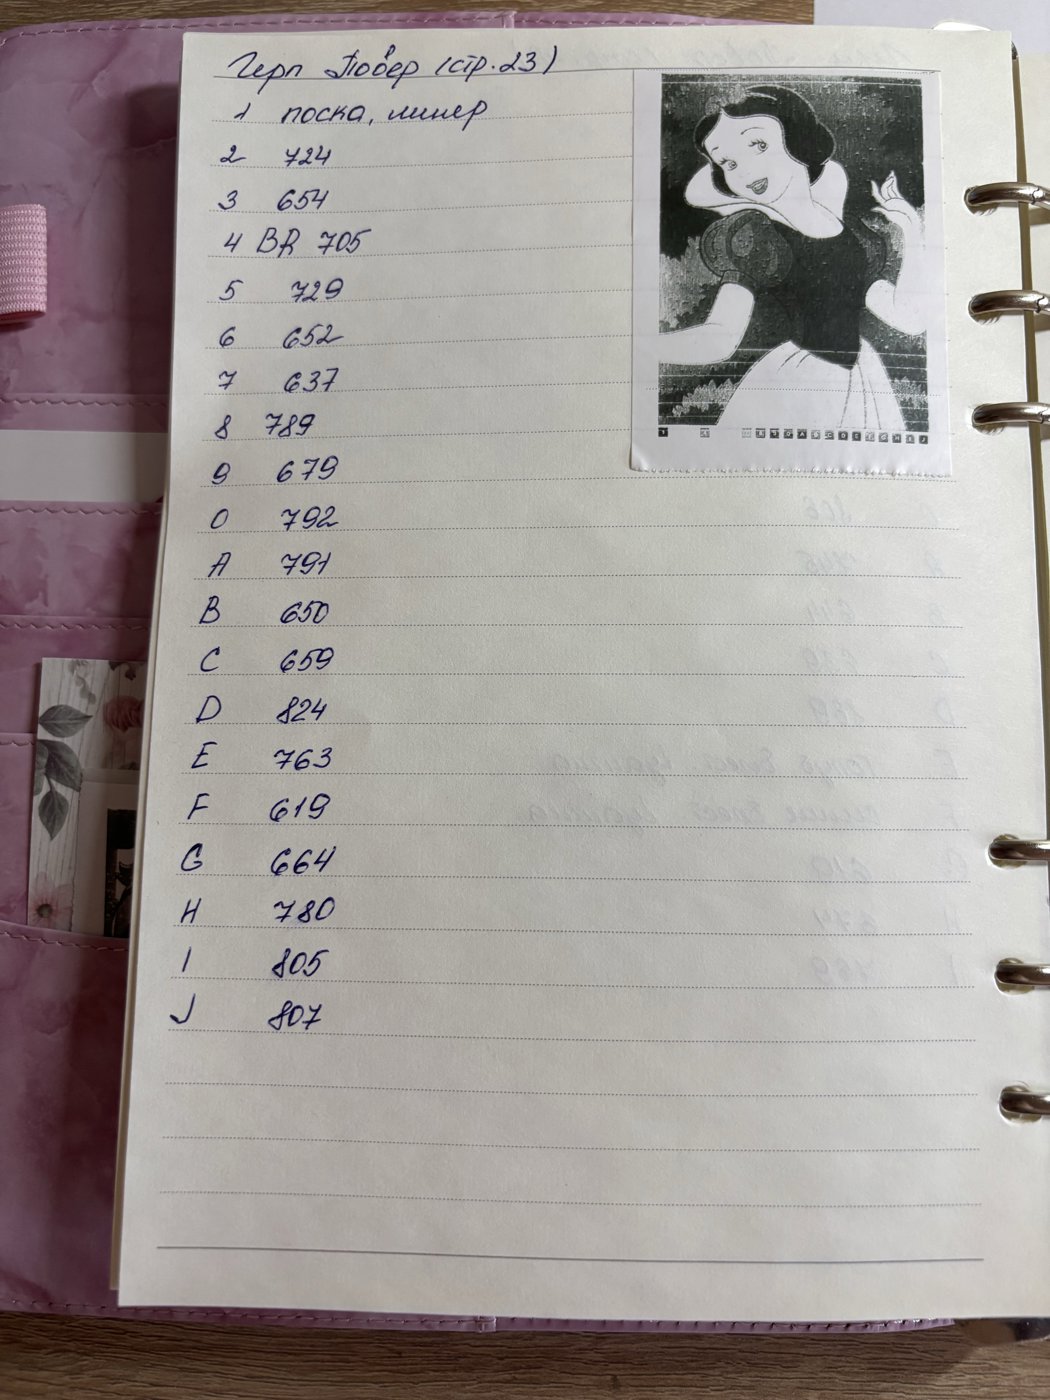 Герл Повер (стр. 23)
1 поска, линер
2 724
3 654
4 BR 705
5 729
6 652
7 637
8 789
9 679
0 792
A 791
B 650
C 659
D 824
E 763
F 619
G 664
H 780
I 805
J 807